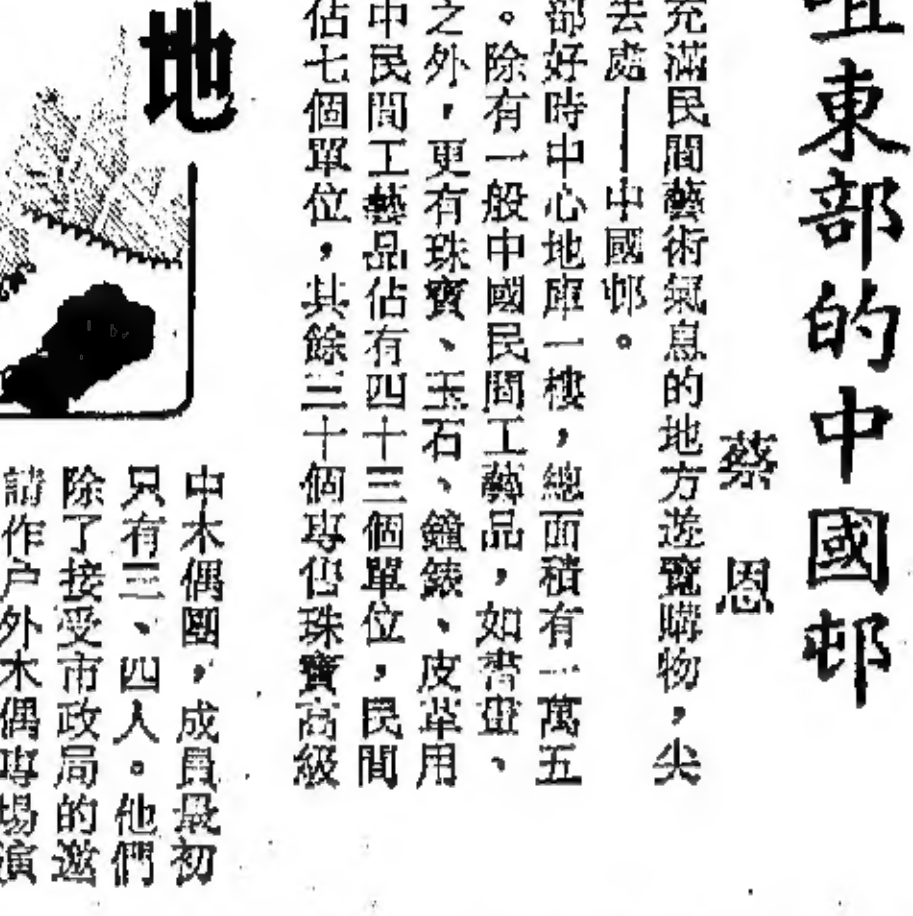 咀東部的中國邨
蔡恩
充滿民間藝術氣息的地方遊覽購物,尖
去處——中國邨。
部好時中心地庫一樓,總面積有一萬五
。除有一般中國民間工藝品,如書畫、
之外,更有珠寶、玉石、鐘錶、皮革用
中民間工藝品佔有四十三個單位,民間
佔七個單位,其餘三十個專售珠寶高級
地
中木偶團,成員最初
只有三、四人。他們
除了接受市政局的邀
請作户外木偶專場演